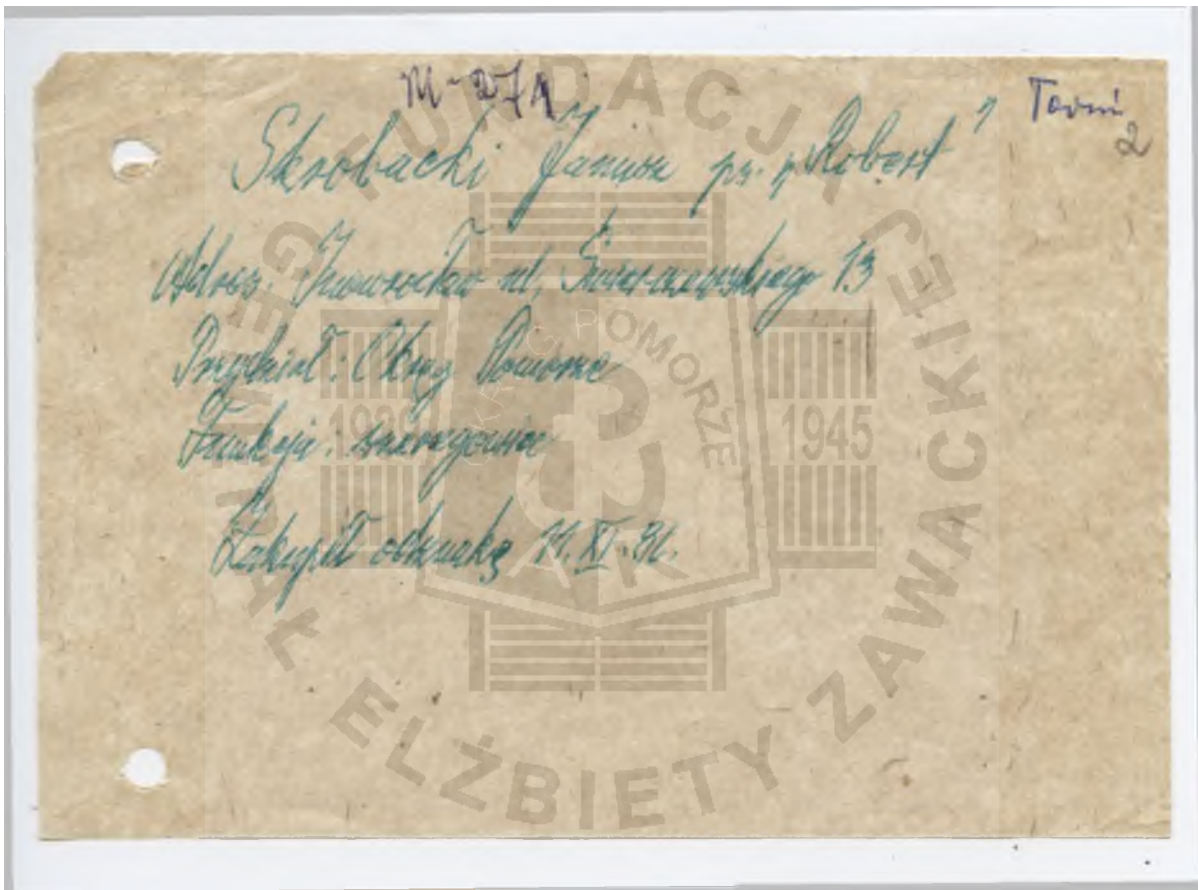 M-271
Toruń
2
Skrobacki Janusz ps. „Robert"
Adres: Inowrocław ul. Świerczewskiego 13
Przydział: Okręg Pomorze
Funkcja:
Zakupił odznakę 11.XI.
FUNDACJA GENERAŁ ELŻBIETY ZAWACKIEJ
OKRĘG POMORZE
1939
1945
AK